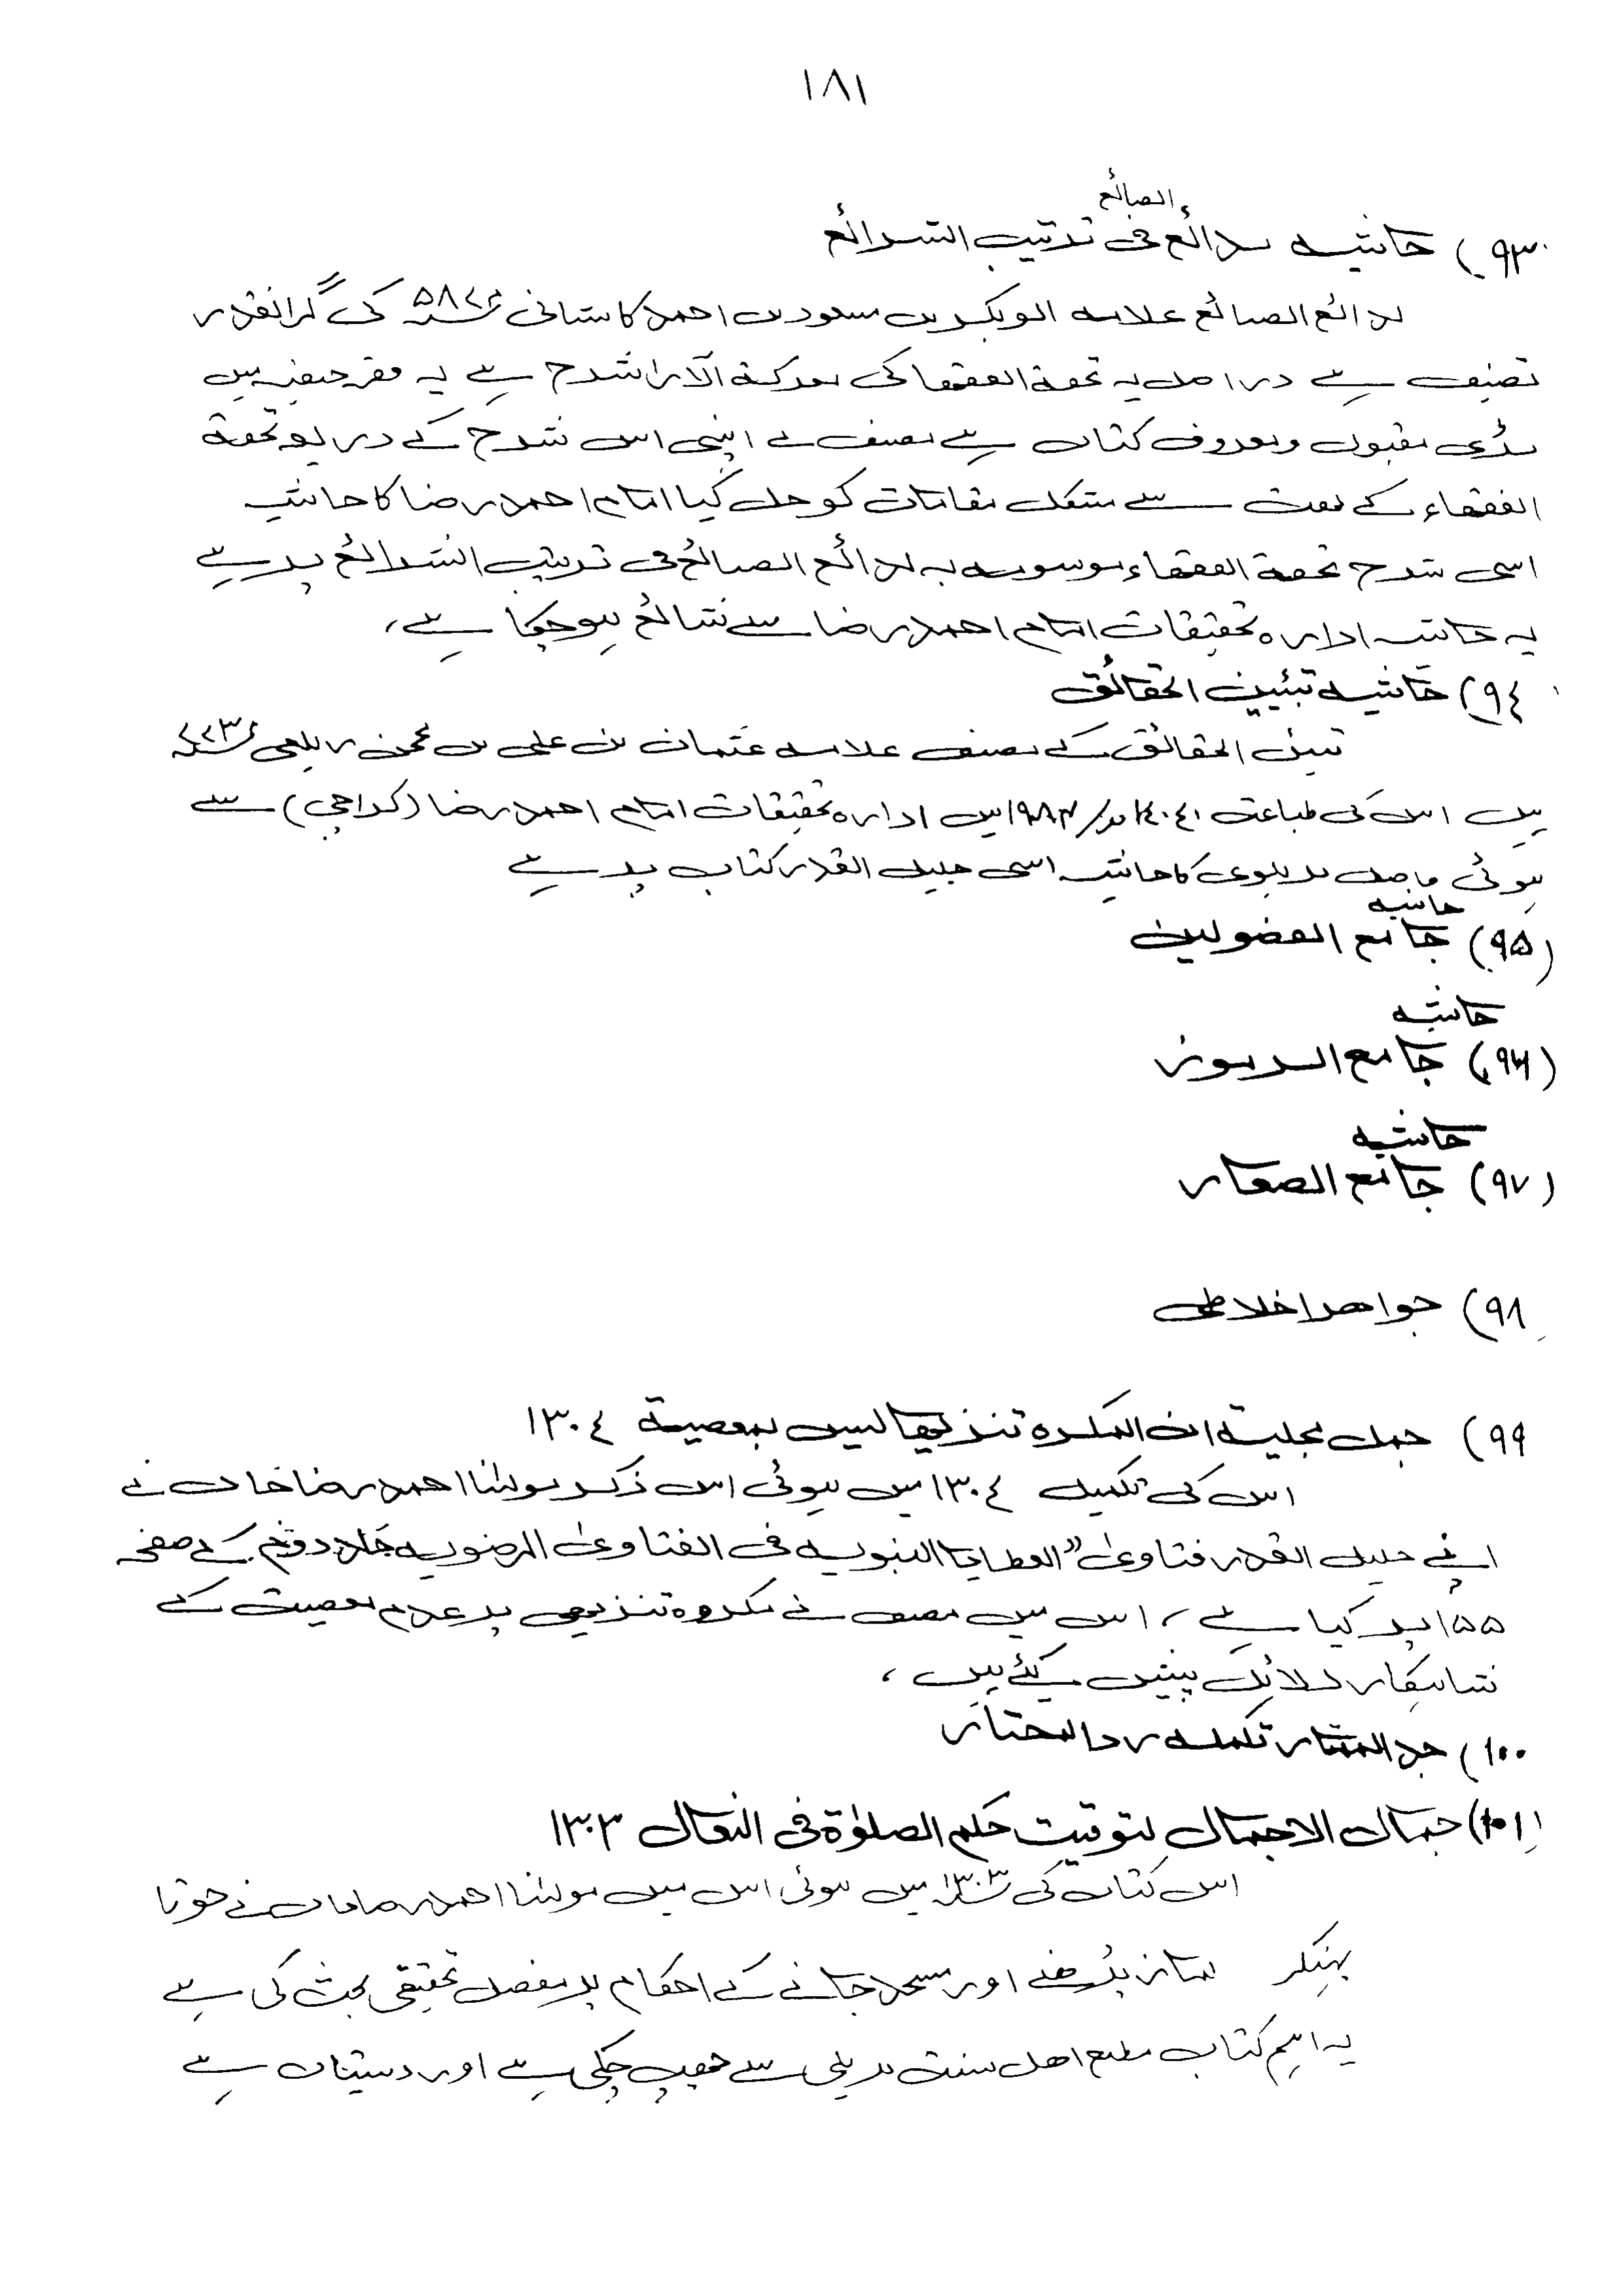 ۱۸۱
الصنائع
۹۳) حاشیہ بدائع فی ترتیب الشرائع
بدائع الصنائع علامہ ابوبکر بن مسعود بن احمد کاسانی ۵۸۷ کی گرانقدر
تصنیف ہے دراصل یہ تحفۃ الفقہا کی معرکۃ الآرا شرح ہے یہ فقہ حنفیہ میں
بڑی مقبول و معروف کتاب ہے مصنف نے اپنی اس شرح کے ذریعہ تحفۃ
الفقہاء کے بہت سے مشکل مقامات کو حل کیا امام احمد رضا کا حاشیہ
اسی شرح تحفۃ الفقہاء موسومہ بہ بدائع الصنائع فی ترتیب الشرائع پر ہے
یہ حاشیہ ادارہ تحقیقات امام احمد رضا سے شائع ہوچکا ہے،
۹٤) حاشیہ تبئین الحقائق
تبین الحقائق کے مصنف علامہ عثمان بن علی بن محجن زیلعی ۷۴۳
ہیں اس کی طباعت ۱٤۰٤ھ/ ۱۹۸۳ میں ادارہ تحقیقات امام احمد رضا (کراچی) سے
ہوئی فاضل بریلوی کا حاشیہ اسی جلیل القدر کتاب پر ہے
حاشیہ
(۹۵) جامع الفضولین
حاشیہ
(۹۶) جامع الرموز
حاشیہ
(۹۷) جامع الصغار
۹۸) جواھر اخلاطی
۹۹) جمل مجلیۃ ان المکروہ تنزیھا لیس بمعصیۃ ۱۳۰٤
اس کی تکمیل ۱۳۰٤ میں ہوئی اس ذکر مولٰنا احمد رضا خان نے
اپنے جلیل القدر فتاویٰ "العطایا النبویہ فی الفتاویٰ الرضویہ جلد دوئم کے صفحہ
۱۵۵ پر کیا ہے، اس میں مصنف نے مکروہ تنزیھی پر عدم معصیت کے
شاہکار دلائل پیش کیئے ہیں،
۱۰۰) جد الممتار تکملہ رد المحتار
(۱۰۱) جمال الاجمال لتوقیت حکم الصلوٰۃ فی النعال ۱۳۰۳
اس کتاب کی ۱۳۰۳ میں ہوئی اس میں مولٰنا احمد رضا خان نے جوتا
پہنکر نماز پڑھنے اور مسجد جانے کے احکام پر مفصل تحقیقی بحث کی ہے
یہ اہم کتاب مطبع اھل سنت بریلی سے چھپ چکی ہے اور دستیاب ہے